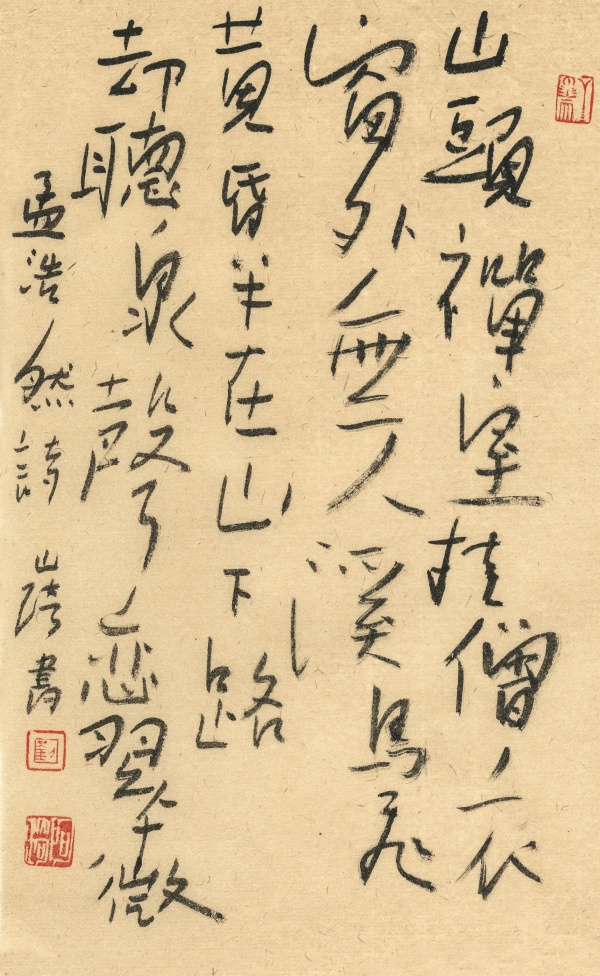 山頭禪室挂僧衣
窗外無人溪鳥飛
黃昏半在山下路
却聽泉聲恋翠微
孟浩然詩 書